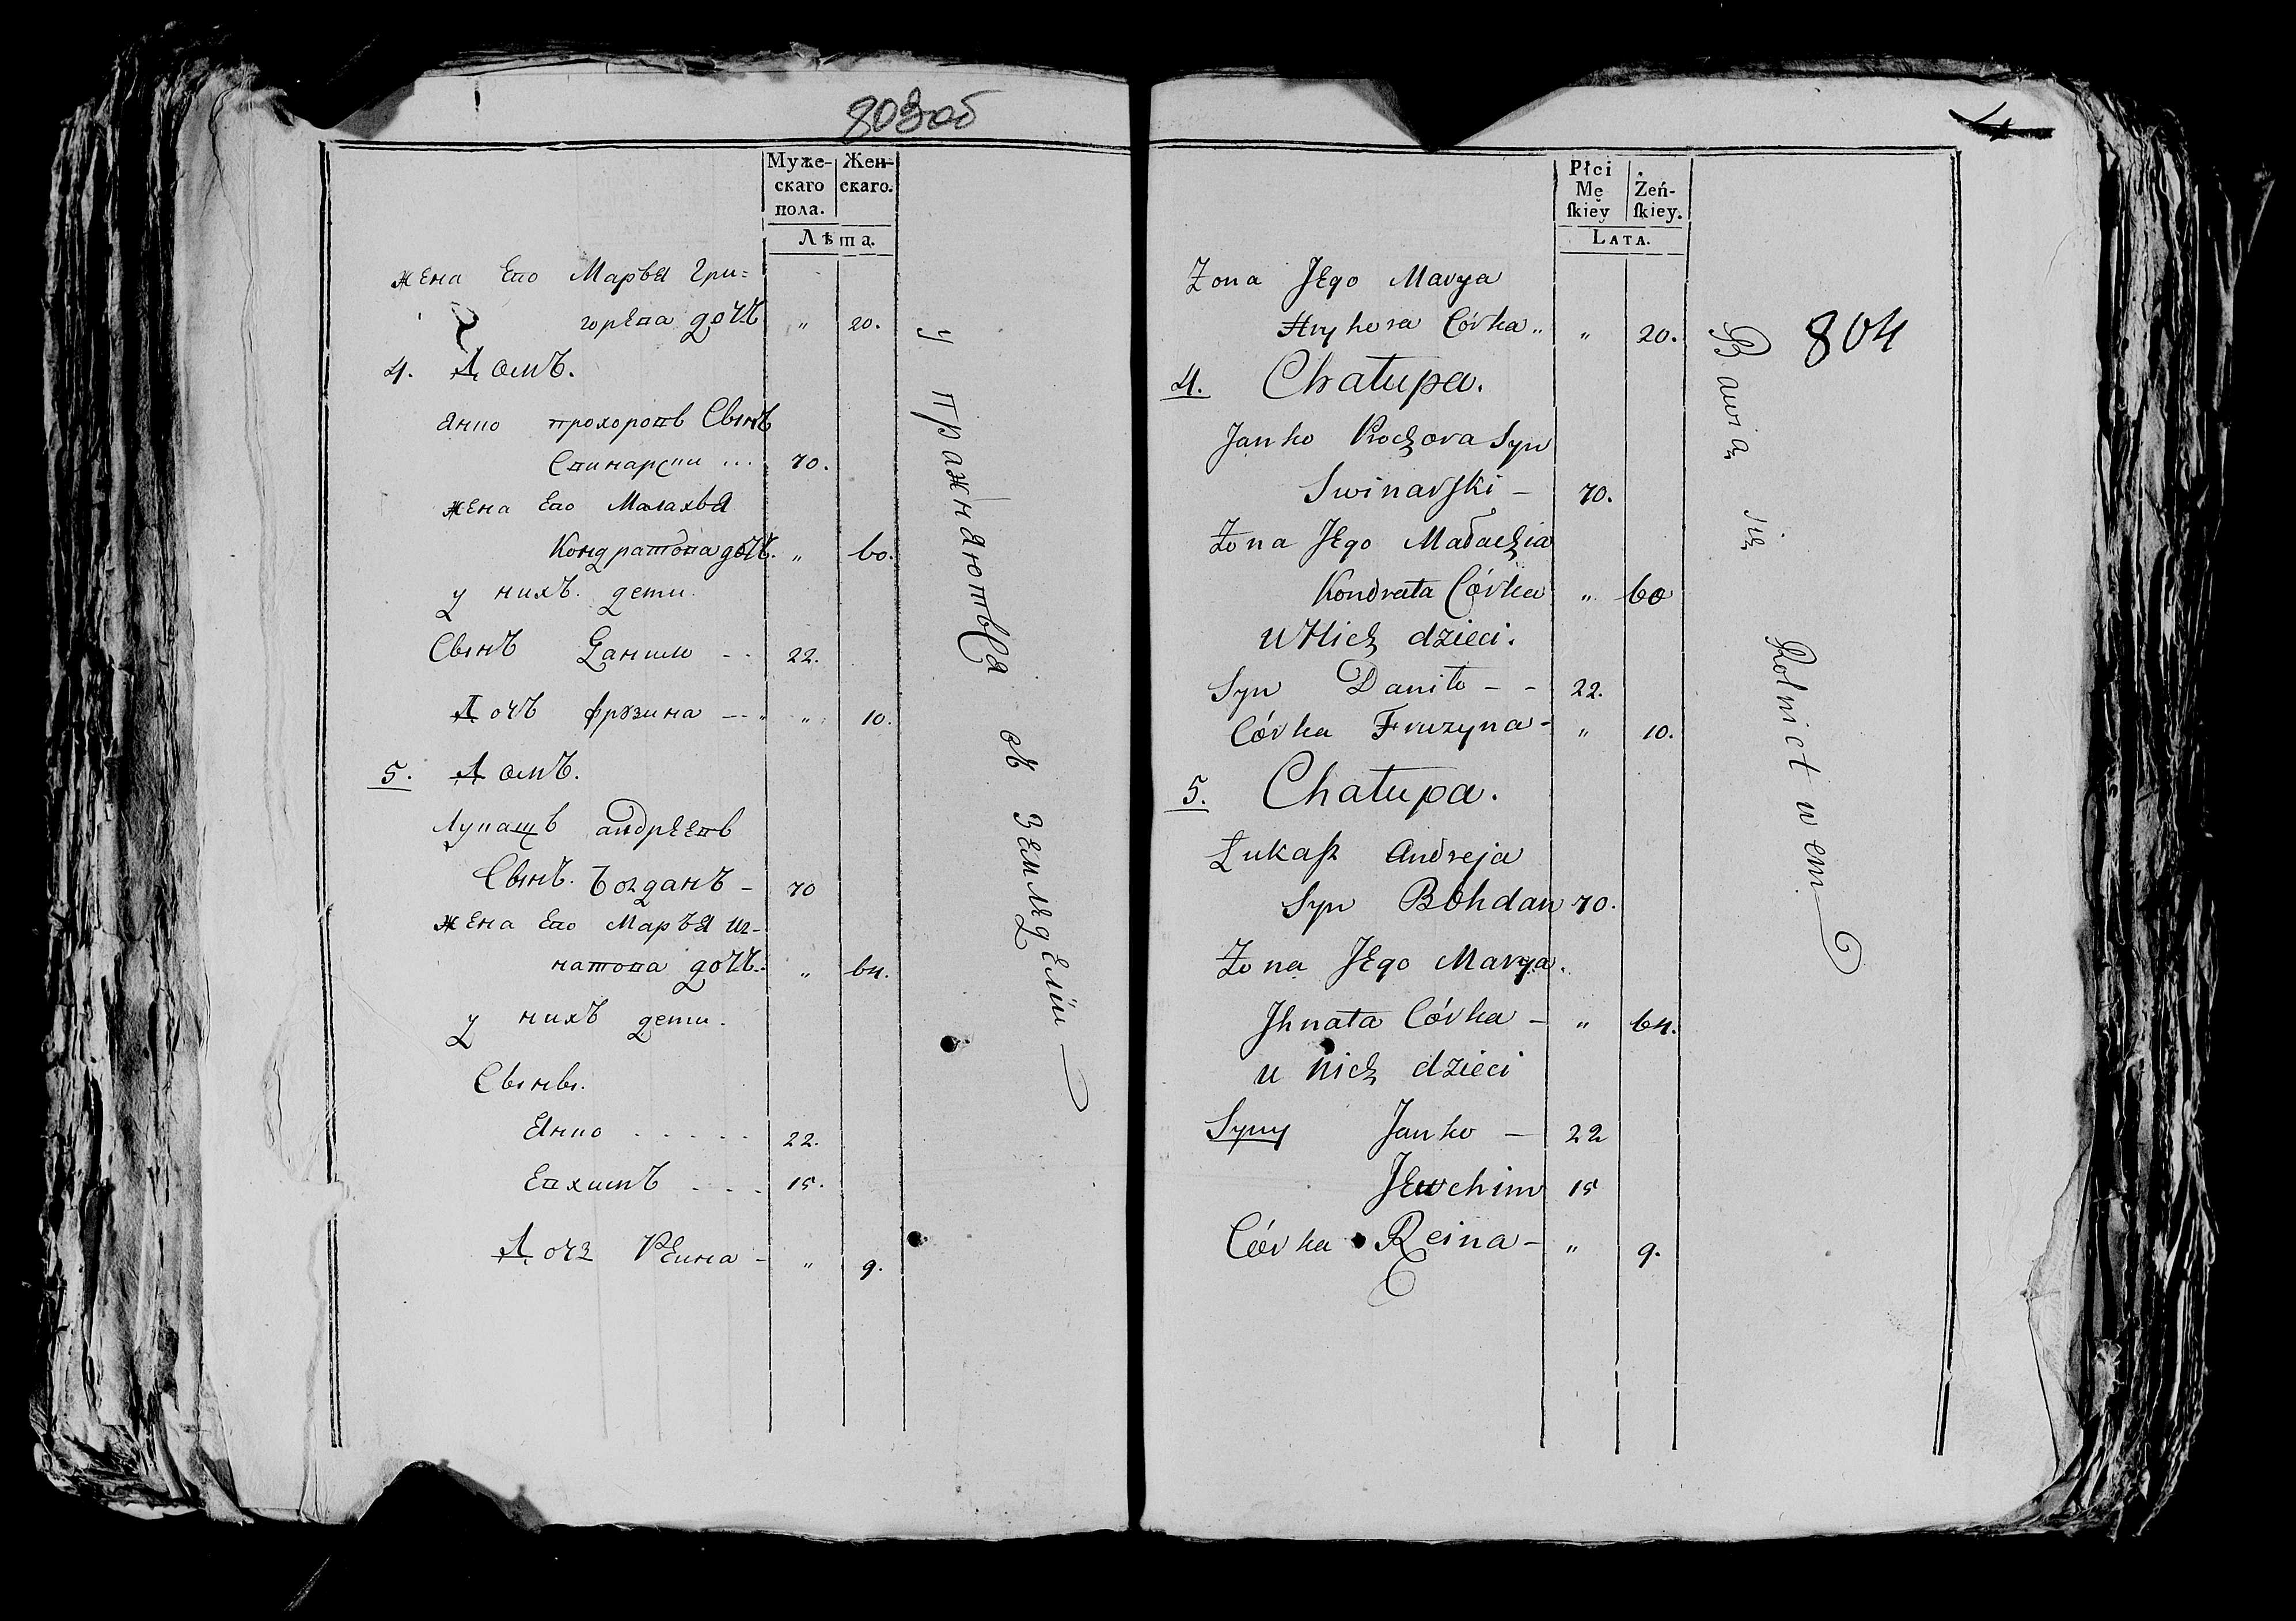 803об
Муже-
скаго
пола.
Жен-
скаго.
Лѣта.
жена Его Марья Гри=
горева дочь " 20.
4. Домъ.
Янко прохоровъ Сынъ
Свинарски ... 70.
жена Его Малахья
Кондратова дочь. " 60.
у нихъ. дети.
Сынъ Данило - - 22.
Дочь фрузина - - " " 10.
5. Домъ.
Лукашъ андреевъ
Сынъ. Богданъ - 70
жена Его Марья иг-
натова дочь.. " 64.
у нихъ дети.
Сыны.
Янко . . . . . 22.
Евхимъ . . . 15.
Дочъ Реина - " 9.
упражняютъся въ земледелии
4
Płci
Mę
ſkiey
Żeń-
ſkiey.
LATA.
804
Żona JEgo Marya
Hryhora Córka " " 20.
4. Chałupa.
Janko Prochora Syn
Swinarſki - 70.
Żona JEgo Małachia
Kondrata Córka " 60
U Nich dzieci.
Syn Daniło - - 22.
Córka Fruzyna - " 10.
5. Chałupa.
Łukaſz Andreja
Syn Bohdan 70.
Żona JEgo Marya.
Jhnata Córka - " 64.
u nich dzieci
Syny Janko - 22
JEwchim 15
Córka Reina - " 9.
Bawią się Rolnictwem